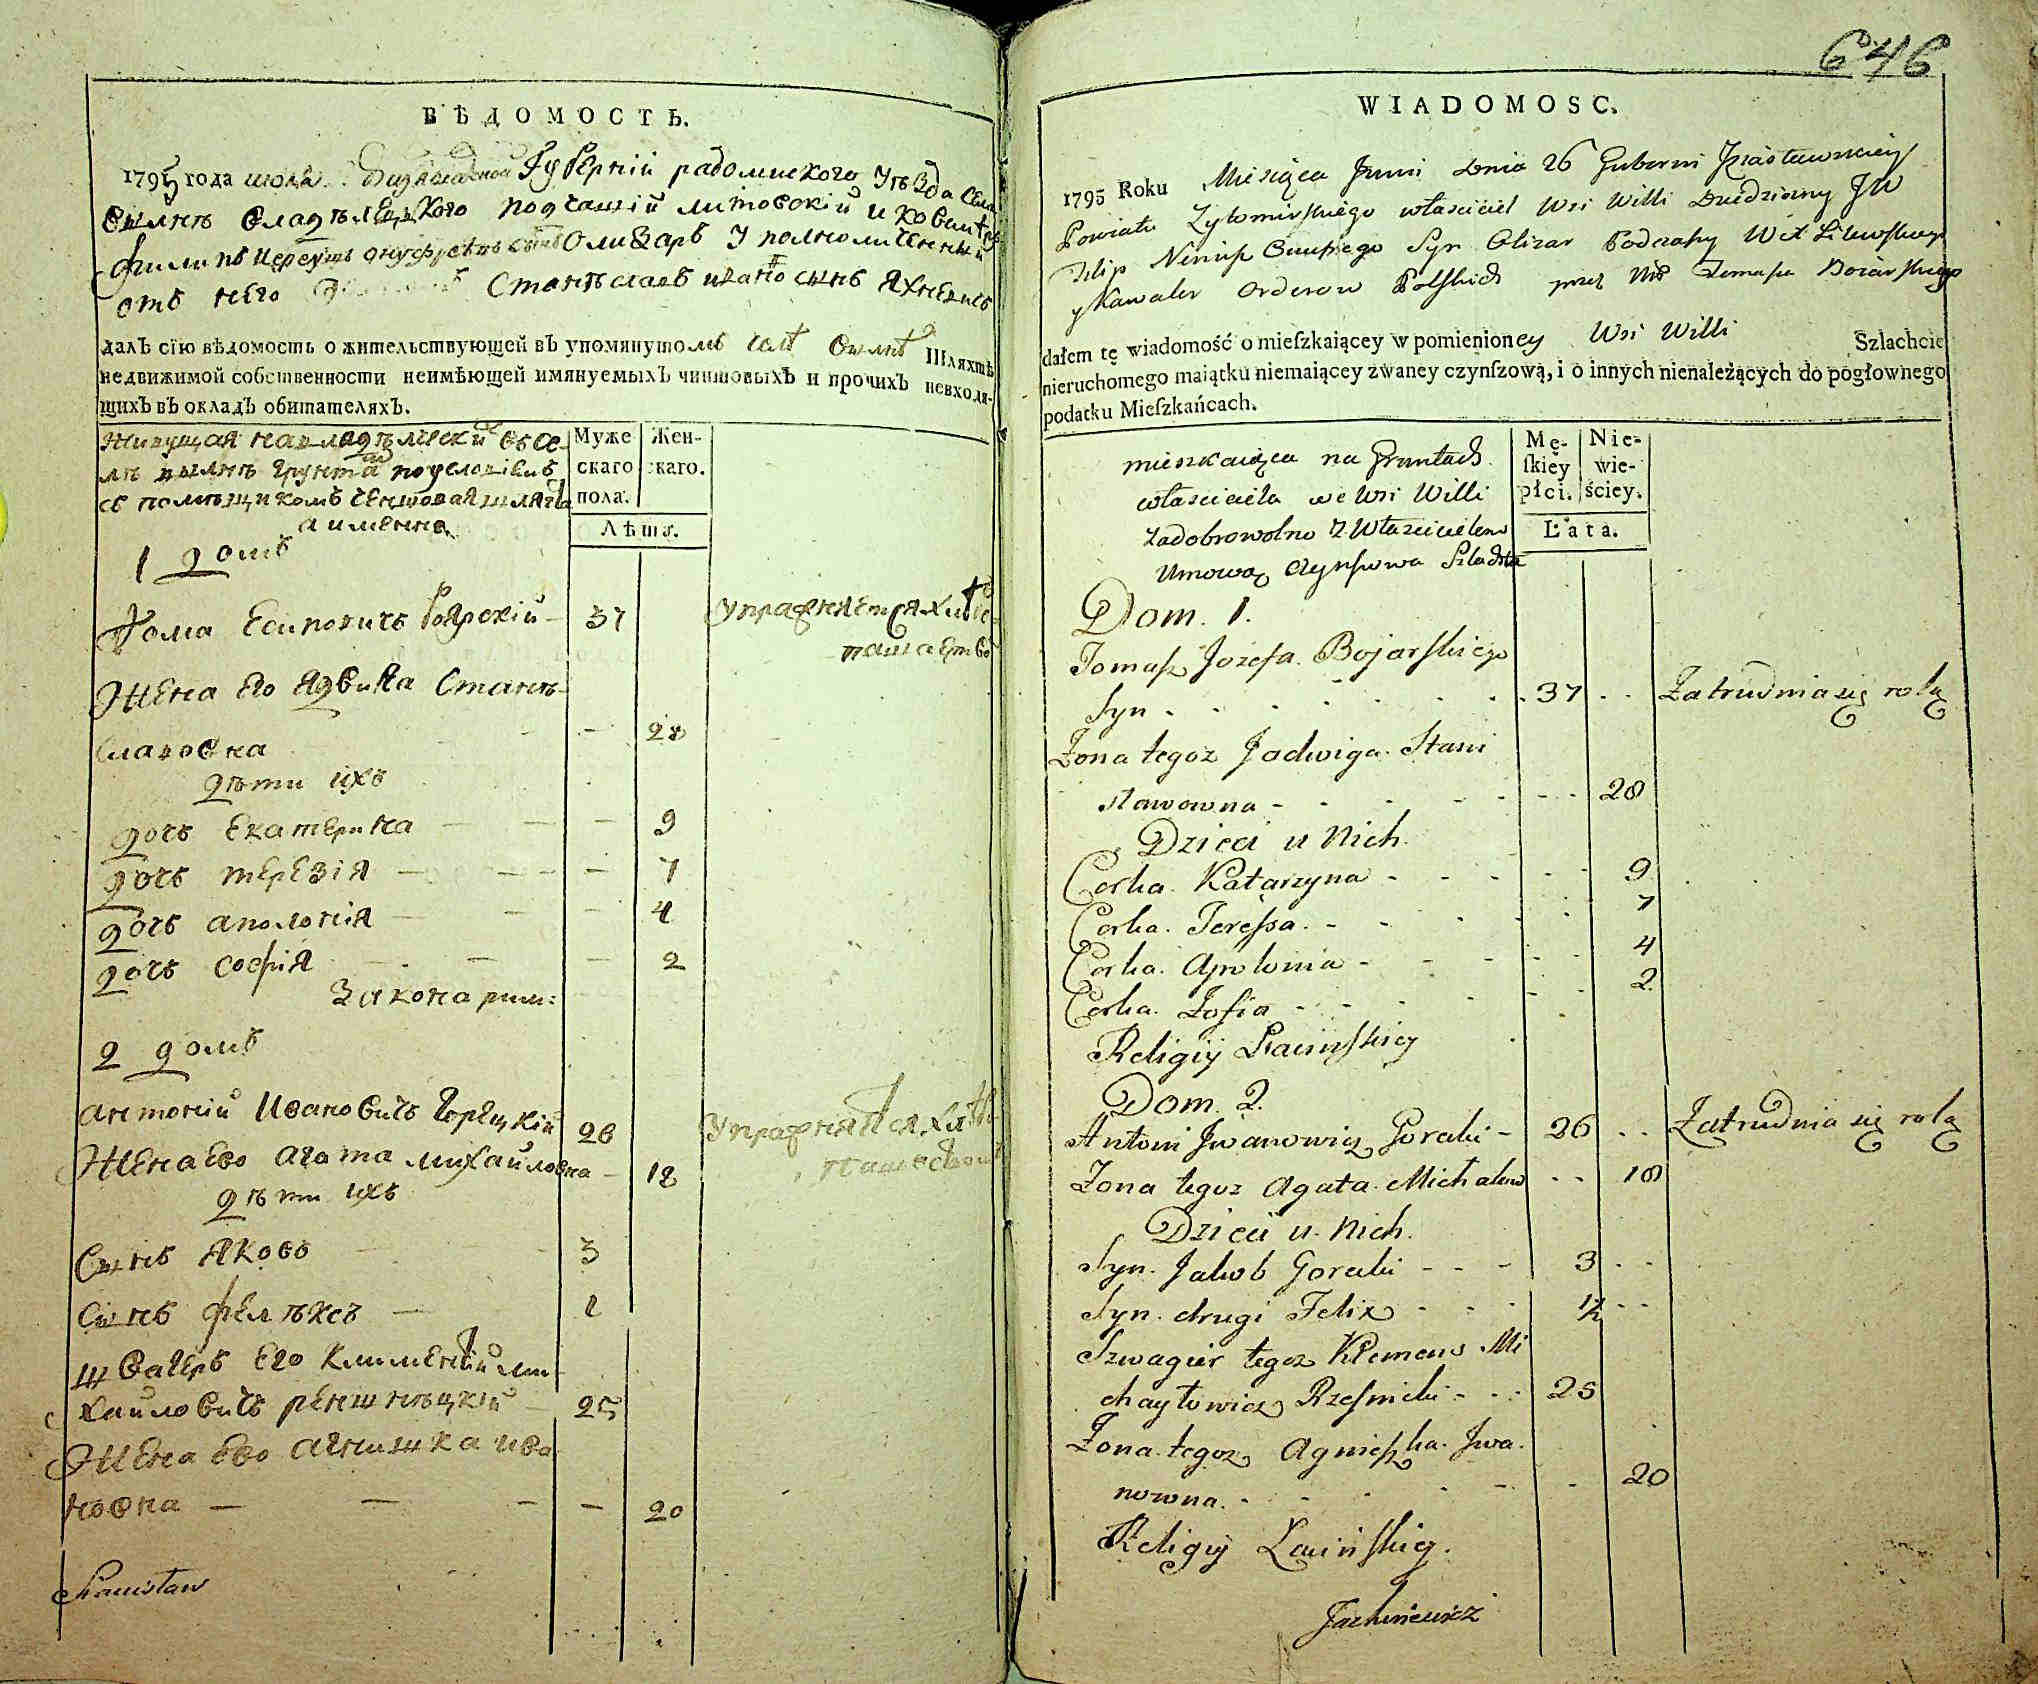 ВѢДОМОСТЬ.
1795 года июля Губернїи радомиского Уѣзда села
Вилнѣ владѣлецкого подчашїй литовскїй и кавалеръ
филипъ Нереушъ онуфрѣевъ сынъ Олизаръ Уполномоченный
отъ него Станѣславъ ивановъ сынъ Яхневичъ
далЪ сїю вѣдомость о жительствующей вЪ упомянутомъ селѣ Вилнѣ Шляхтѣ
недвижимой собственности неимѣющей имянуемыхЪ чиншовыхЪ и прочихЪ невходя-
щихЪ вЪ окладЪ обитателяхЪ.
Живущая на владѣлческой въ се-
лѣ вилнѣ грунта по условїямъ
съ помѣщикомъ чиншовая шляхта
а именно
Муже
скаго
пола.
Жен-
скаго.
Лѣта.
1 домъ
Фома Есиповичъ боярскїй 37 Упражняется хлѣбо
пашествомъ
Жена его Ядвига Станѣ-
славовна 28
дѣти ихъ
дочь Екатерина 9
дочь терезїя 7
дочь аполонїя 4
дочь софїя 2
Закона рим:
2 домъ
антонїй Ивановичъ Горецкїй 26 Упражняется хлѣбо
пашеством
Жена ево агата михайловна 18
дѣти ихъ
Сынъ Яковъ 3
Сынъ фелѣксъ 1
швагеръ его климентїй ми
хайловичъ реншнѣцкїй 25
Жена ево агнишка ива
новна 20
Stanisław
646
WIADOMOSC.
1795 Roku Miesiąca Junii dnia 26 Gubernii Jzasławskiey
Powiatu Zytomirskiego właściciel Wsi Willi Dziedziczny JW
Filip Neriusz Onufrego Syn Olizar Podczaszy Wt Litewskiego
y Kawaler Orderow Polskich przez Tomasza Boiarskiego
dałem tę wiadomość o mieſzkaiącey w pomienioney Wsi Willi Szlachcie
nieruchomego maiątku niemaiącey zwaney czynſzową, i o innych nienależących do pogłownego
podatku Mieſzkańcach.
mieszkaiąca na Gruntach
właściciela we Wsi Willi
za dobrowolno z Właścicielem
Umową Czynszowa Szlachta
Mę-
ſkiey
płci.
Nie-
wie-
ściey.
Lata.
Dom. 1.
Tomasz Jozefa Bojarskiego
Syn 37 Zatrudnia się rolą
Zona tegoz Jadwiga Stani
sławowna 28
Dzieci u Nich.
Corka. Katarzyna 9
Corka. Teressa. 7
Corka. Apolonia 4
Corka. Zofia 2.
Religiy Łacińskiey
Dom. 2.
Antoni Jwanowicz Gorecki 26 Zatrudnia się rolą
Zona tegoz Agata Michałow 18
Dzieci u. Nich.
Syn. Jakob Gorecki 3
Syn. drugi Felix 1/2
Szwagier tegoz Klemens Mi
chayłowicz Rzesnicki 25
Zona. tegoz Agnieszka. Jwa.
nowna. 20
Religiy Łacińskiey.
Jachniewicz